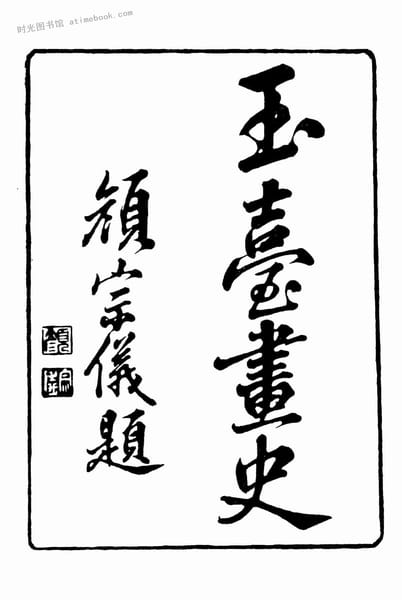 时光图书馆 atimebook.com
玉臺畫史
顔宗儀題